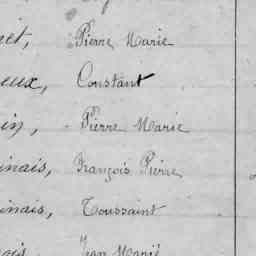 net, Pierre Marie
eux, Constant
in, Pierre Marie
inais, François Pierre
inais, Toussaint
ais, Jean Marie